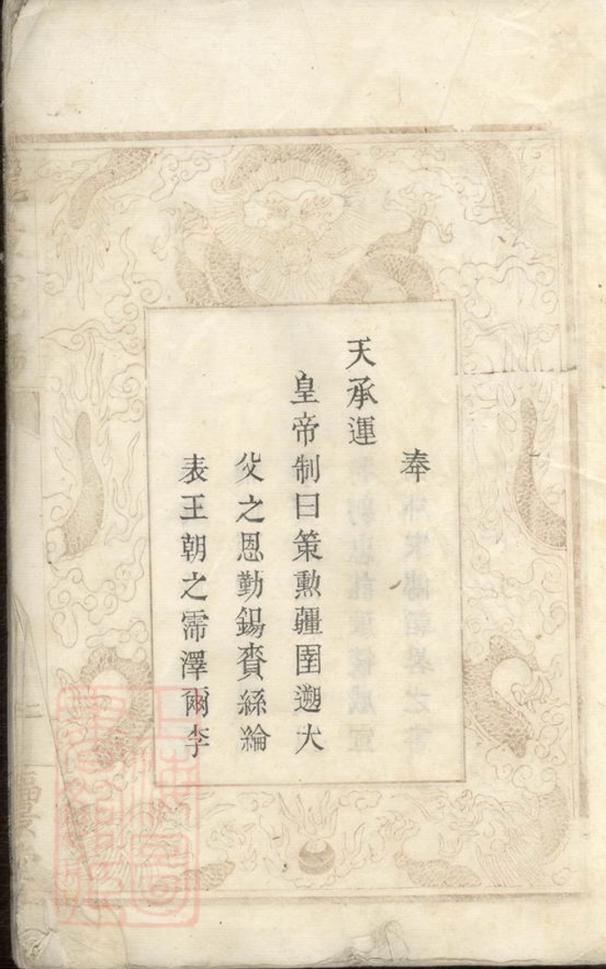 奉
天承運
皇帝制曰策勲疆圉遡大
父之恩勤錫賚絲綸
表王朝之霈澤爾李